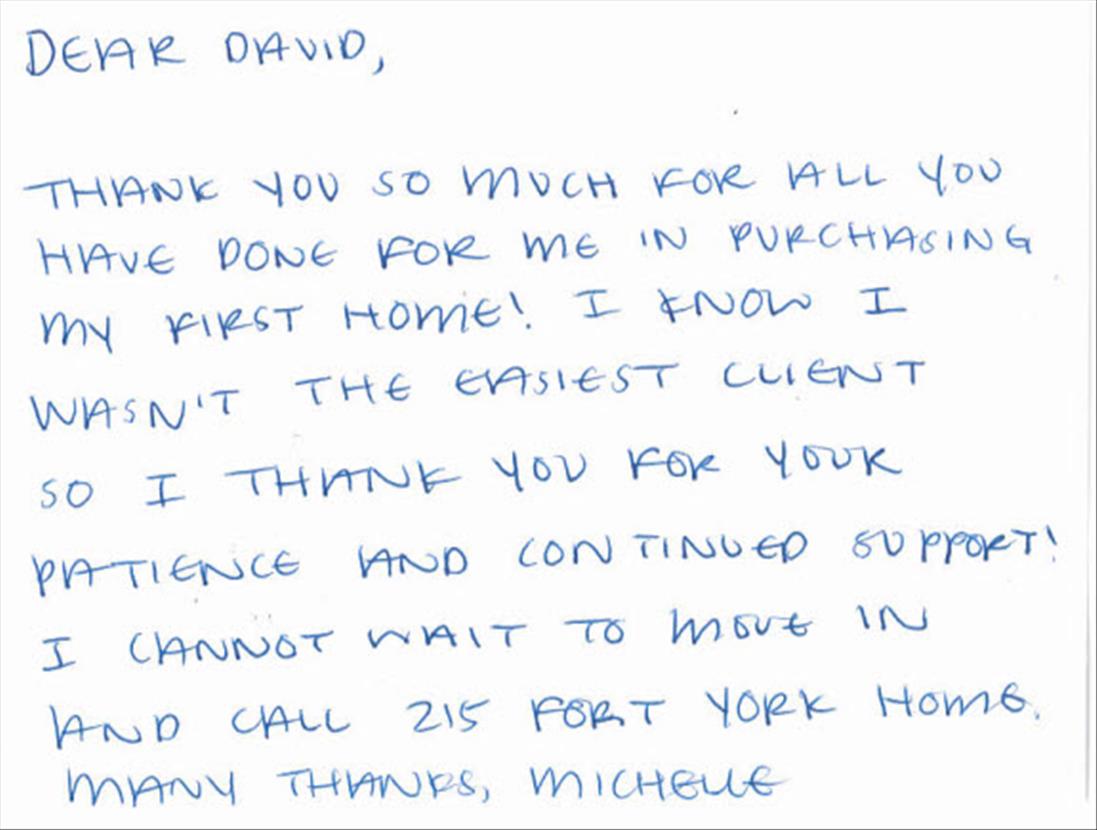 DEAR DAVID,
THANK YOU SO MUCH FOR ALL YOU
HAVE DONE FOR ME IN PURCHASING
MY FIRST HOME! I KNOW I
WASN'T THE EASIEST CLIENT
SO I THANK YOU FOR YOUR
PATIENCE AND CONTINUED SUPPORT!
I CANNOT WAIT TO MOVE IN
AND CALL 215 FORT YORK HOME.
MANY THANKS, MICHELLE